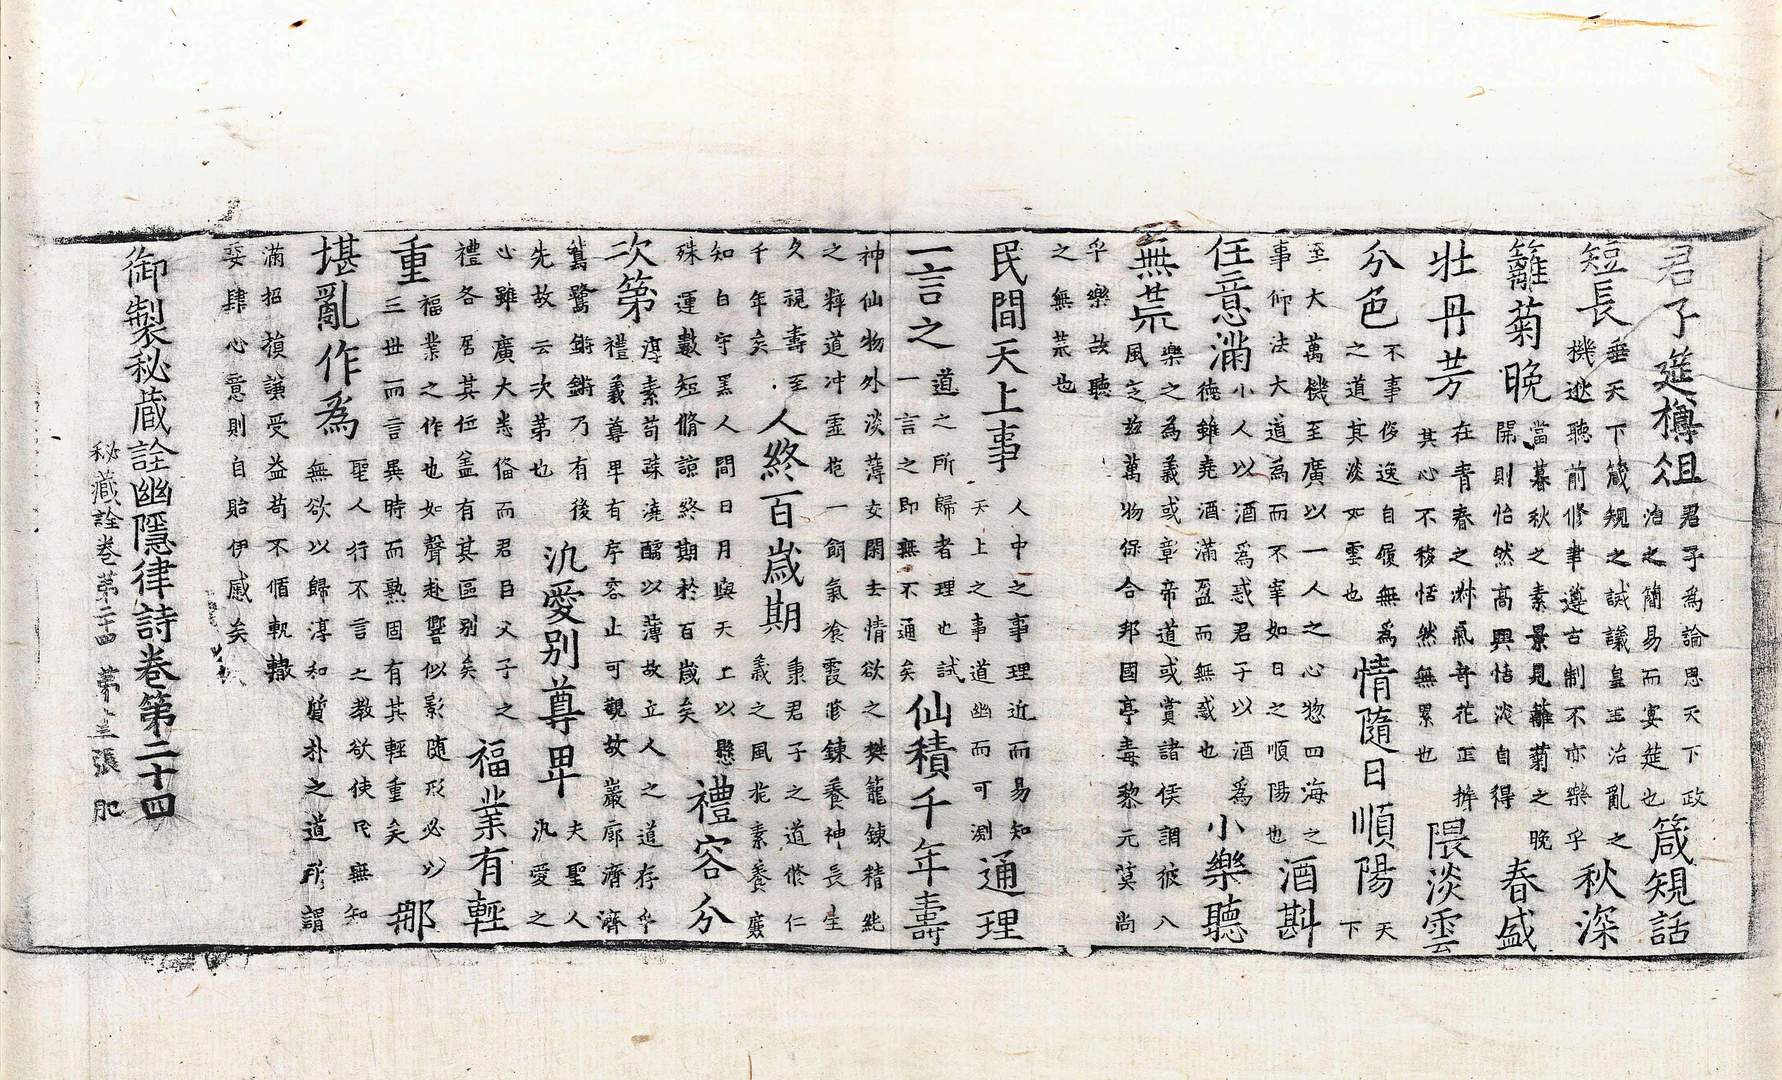 君子筵樽俎
君子為論思天下政
治之簡易而宴筵也
箴規話
短長
垂天下箴規之誡議皇王治亂之
機逖聽前修聿遵古制不亦樂乎
秋深
籬菊晚
當暮秋之素景見蘺菊之晚
開則怡然高興恬淡自得
春盛
牡丹芳
在青春之淋氣奇花正拆
其心不移恬然無累也
隈淡雲
分色
不事侈逸自履無為
之道其淡如雲也
情隨日順陽
天
下
至大萬機至廣以一人之心惣四海之
事仰法大道為而不宰如日之順陽也
酒斟
任意滿
小人以酒為惑君子以酒為
德雖堯酒滿盈而無惑也
小樂聽
無荒
樂之為義或章帝道或賞諸侯調彼八
風玄茲萬物保合邦國亭毒黎元莫尚
乎樂故聽
之無荒也
民間天上事
人中之事理近而易知
天上之事道幽而可測
通理
一言之
道之所歸者理也試
一言之即無不通矣
仙積千年壽
神仙物外淡薄安閑去情欲之樊籠鍊精純
之粹道冲霊抱一飼氣飡霞修鍊養神長生
久視壽至
千年矣
人終百歲期
秉君子之道修仁
義之風抱素養
知白守黑人間日月與天上以懸
殊運數短脩諒終期於百歲矣
禮容分
次第
淳素苟疎澆醨以薄故立人之道存乎
禮義尊卑有序容止可觀故巖廊濟濟
鵷鷺鏘鏘乃有後
先故云次第也
汎愛别尊卑
夫聖人
汎愛之
心雖廣大悉俻而君臣父子之
禮各居其位盖有其區别矣
福業有輕
重
福業之作也如聲赴響似影随形必以
三世而言異時而熟固有其輕重矣
那
堪亂作為
聖人行不言之教欲使民無知
無欲以歸淳和質朴之道所謂
滿招損謙受益苟不循軌轍
妄肆心意則自貽伊慼矣
御製秘蔵詮幽隱律詩卷第二十四
秘藏詮卷第二十四 第 張 肥